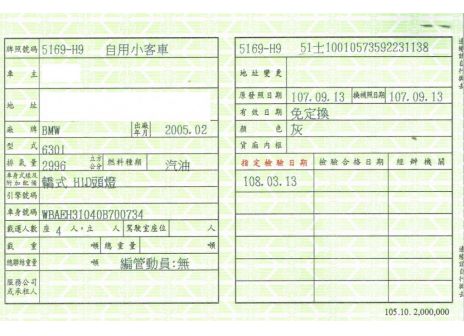 牌照號碼 5169-H9 自用小客車
車主
地址
廠牌 BMW 出廠年月 2005.02
型式 630I
排氣量 2996 立方公分 燃料種類 汽油
車身式樣及附加配備 轎式 HID頭燈
引擎號碼
車身號碼 WBAEH31040B700734
載運人數 座 4 人,立 人 駕駛室座位 人
載重 噸 總重量 噸
總聯結重量 噸 編管動員:無
服務公司或承租人
5169-H9 51士10010573592231138
地址變更
原發照日期 107.09.13 換補照日期 107.09.13
有效日期 免定換
顏色 灰
貨廂內框
指定檢驗日期 檢驗合格日期 經辦機關
108.03.13
105.10. 2,000,000